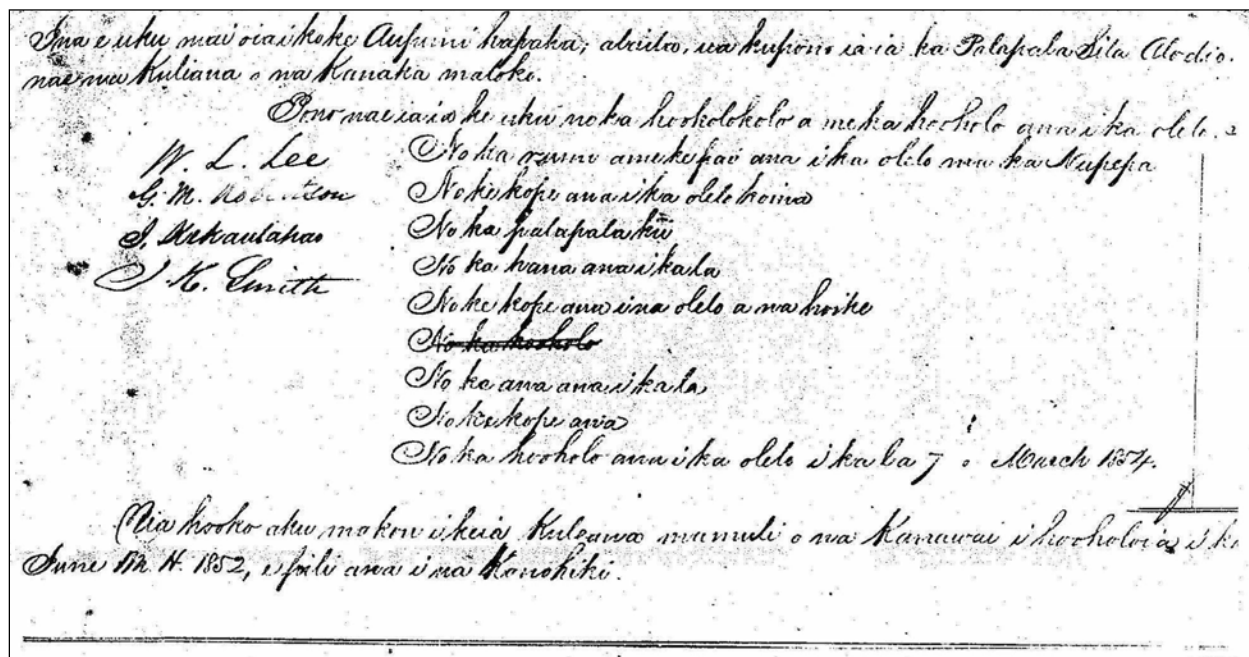 Ina e uku mai oia i koke Aupuni hapaha, alaila, ua kupono ia ia ka Palapala Sila Alodio.
nae na Kuliana o na Kanaka maloko.
Pono nae ia ia ke uku no ka hookolokolo a me ka hooholo ana i ka olelo.
W. L. Lee
G. M. Robertson
J. Kekaulahao
J. H. Smith
No ka rumi a me ke pai ana i ka olelo ma ka Nupepa
No ke kope ana i ka olelo hoina
No ka palapala kii
No ka hana ana i ka la
No ke kope ana i na olelo a na hoike
No ka hooholo
No ke ana ana i ka la
No ke kope ana
No ka hooholo ana i ka olelo i ka la 7 o March 1854.
Nia hooko aku makou i keia Kuleana mamuli o na Kanawai i hooholoia i ka
June M. H. 1852, e pili ana i na Konohiki.